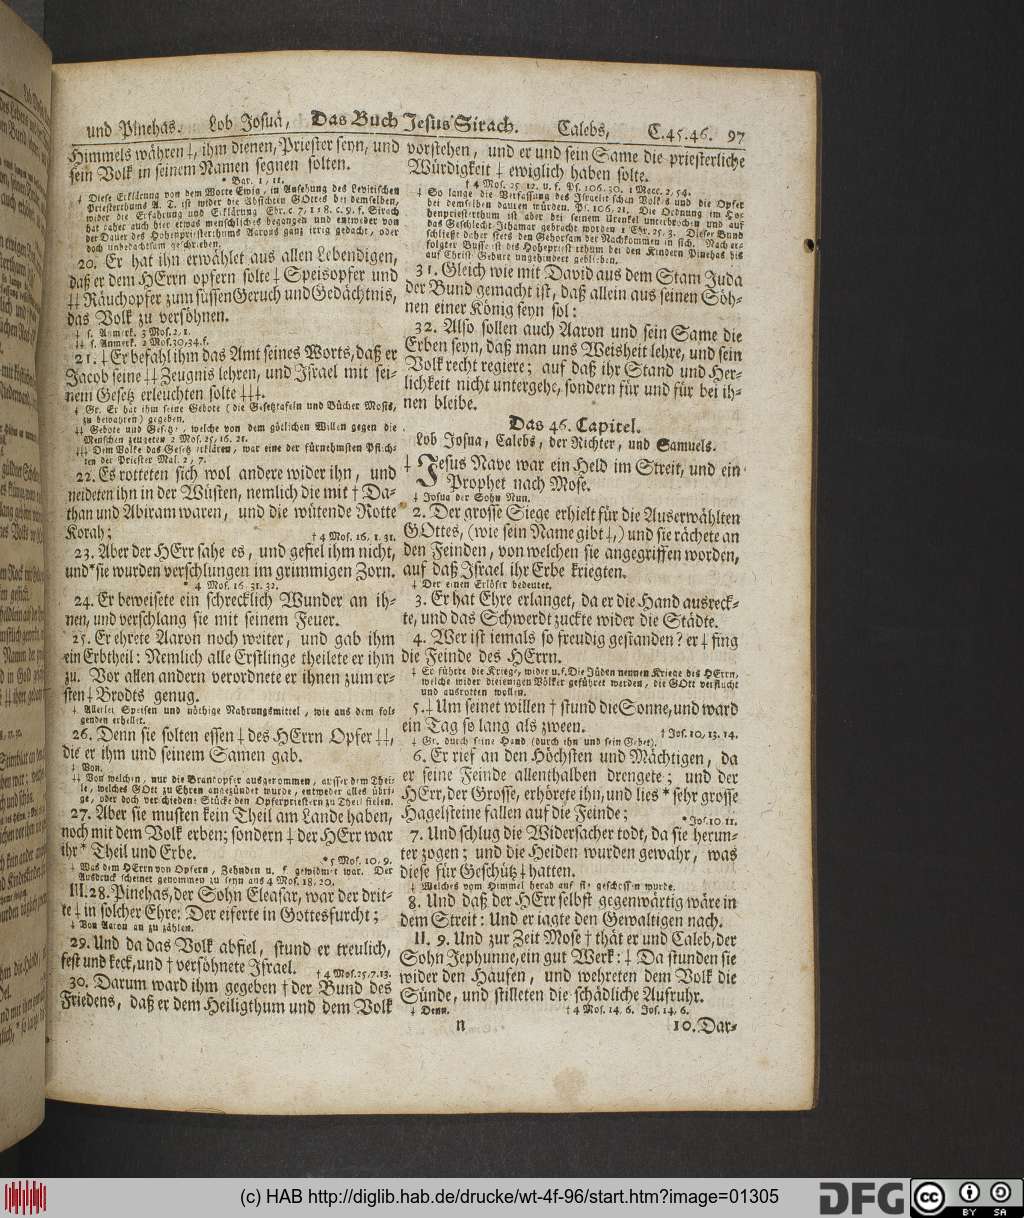 und Pinehas. Lob Josuä, Das Buch Jesus Sirach. Calebs, C.45.46. 97
Himmels währen ‡, ihm dienen, Priester seyn, und
sein Volk in seinem Namen segnen solten.
* Bar. 1, 11.
‡ Diese Erklärung von dem Worte Ewig, in Ansehung des Levitischen
Priesterthums A. T. ist wider die Absichten GOttes bei demselben,
wider die Erfahrung und Erklärung Ebr. c. 7, 1 18. c. 9. f. Sirach
hat daher auch hier etwas menschliches begangen und entweder von
der Dauer des Hohenpriesterthums Aarons ganz irrig gedacht, oder
doch unbedachtsam geschrieben.
20. Er hat ihn erwählet aus allen Lebendigen,
daß er dem HErrn opfern solte ‡ Speisopfer und
‡‡ Räuchopfer zum süssen Geruch und Gedächtnis,
das Volk zu versöhnen.
‡ s. Anmerk. 3 Mos. 2, 1.
‡‡ s. Anmerk. 2 Mos. 30, 34. f.
21. ‡ Er befahl ihm das Amt seines Worts, daß er
Jacob seine ‡‡ Zeugnis lehren, und Israel mit sei-
nem Gesetz erleuchten solte ‡‡‡.
‡ Gr. Er hat ihm seine Gebote (die Gesetztafeln und Bücher Mosis,
zu bewahren) gegeben.
‡‡ Gebote und Gesetze, welche von dem götlichen Willen gegen die
Menschen zeugeten 2 Mos. 25, 16. 21.
‡‡‡ Dem Volke das Gesetz erklären, war eine der fürnehmsten Pflich-
ten der Priester Mal. 2, 7.
22. Es rotteten sich wol andere wider ihn, und
neideten ihn in der Wüsten, nemlich die mit † Da-
than und Abiram waren, und die wütende Rotte
Korah; † 4 Mos. 16, 1. 31.
23. Aber der HErr sahe es, und gefiel ihm nicht,
und * sie wurden verschlungen im grimmigen Zorn.
* 4 Mos. 16, 31. 32.
24. Er beweisete ein schrecklich Wunder an ih-
nen, und verschlang sie mit seinem Feuer.
25. Er ehrete Aaron noch weiter, und gab ihm
ein Erbtheil: Nemlich alle Erstlinge theilete er ihm
zu. Vor allen andern verordnete er ihnen zum er-
sten ‡ Brodts genug.
‡ Allerlei Speisen und nöthige Nahrungsmittel, wie aus dem fol-
genden erhellet.
26. Denn sie solten essen ‡ des HErrn Opfer ‡‡,
die er ihm und seinem Samen gab.
‡ Von.
‡‡ Von welchen, nur die Brandopfer ausgenommen, ausser dem Thei-
le, welches GOtt zu Ehren angezündet wurde, entweder alles übri-
ge, oder doch verschiedene Stücke den Opferpriestern zu Theil fielen.
27. Aber sie musten kein Theil am Lande haben,
noch mit dem Volk erben; sondern ‡ der HErr war
ihr * Theil und Erbe. * 5 Mos. 10, 9.
‡ Was dem HErrn von Opfern, Zehnden u. s. gewidmet war. Der
Ausdruck scheinet genommen zu seyn aus 4 Mos. 18, 20.
III. 28. Pinehas, der Sohn Eleasar, war der drit-
te ‡ in solcher Ehre: Der eiferte in Gottesfurcht;
‡ Von Aaron an zu zählen.
29. Und da das Volk abfiel, stund er treulich,
fest und keck, und † versöhnete Israel. † 4 Mos. 25, 7. 13.
30. Darum ward ihm gegeben † der Bund des
Friedens, daß er dem Heiligthum und dem Volk
vorstehen, und er und sein Same die priesterliche
Würdigkeit ‡ ewiglich haben solte.
† 4 Mos. 25, 12. u. f. Ps. 106, 30. 1 Macc. 2, 54.
‡ So lange die Verfassung des Israelitischen Volkes und die Opfer
bei demselben dauren würden. Ps. 106, 21. Die Ordnung im Ho-
henpriesterthum ist aber bei seinem Urenkel unterbrochen und auf
das Geschlecht Ithamar gebracht worden 1 Chr. 25, 3. Dieser Bund
schliesst daher stets den Gehorsam der Nachkommen in sich. Nach er-
folgter Busse ist das Hohepriesterthum bei den Kindern Pinehas bis
auf Christi Geburt ungehindert geblieben.
31. Gleich wie mit David aus dem Stam Juda
der Bund gemacht ist, daß allein aus seinen Söh-
nen einer König seyn sol:
32. Also sollen auch Aaron und sein Same die
Erben seyn, daß man uns Weisheit lehre, und sein
Volk recht regiere; auf daß ihr Stand und Her-
lichkeit nicht untergehe, sondern für und für bei ih-
nen bleibe.
Das 46. Capitel.
Lob Josua, Calebs, der Richter, und Samuels.
‡ Jesus Nave war ein Held im Streit, und ein
Prophet nach Mose.
‡ Josua der Sohn Nun.
2. Der grosse Siege erhielt für die Auserwählten
GOttes, (wie sein Name gibt ‡,) und sie rächete an
den Feinden, von welchen sie angegriffen worden,
auf daß Israel ihr Erbe kriegten.
‡ Der einen Erlöser bedeutet.
3. Er hat Ehre erlanget, da er die Hand ausreck-
te, und das Schwerdt zuckte wider die Städte.
4. Wer ist iemals so freudig gestanden? er ‡ fing
die Feinde des HErrn.
‡ Er führte die Kriege, wider u. s. Die Jüden nennen Kriege des HErrn,
welche wider dieienigen Völker geführet werden, die GOtt verflucht
und ausrotten wollen.
5. ‡ Um seinet willen † stund die Sonne, und ward
ein Tag so lang als zween. † Jos. 10, 13. 14.
‡ Gr. durch seine Hand (durch ihn und sein Gebet).
6. Er rief an den Höchsten und Mächtigen, da
er seine Feinde allenthalben drengete; und der
HErr, der Grosse, erhörete ihn, und lies * sehr grosse
Hagelsteine fallen auf die Feinde; * Jos. 10, 11.
7. Und schlug die Widersacher todt, da sie herun-
ter zogen; und die Heiden wurden gewahr, was
diese für Geschütz ‡ hatten.
‡ Welches vom Himmel herab auf sie geschossen wurde.
8. Und daß der HErr selbst gegenwärtig wäre in
dem Streit: Und er iagte den Gewaltigen nach.
II. 9. Und zur Zeit Mose † thät er und Caleb, der
Sohn Jephunne, ein gut Werk: ‡ Da stunden sie
wider den Haufen, und wehreten dem Volk die
Sünde, und stilleten die schädliche Aufruhr.
‡ Denn. † 4 Mos. 14, 6. Jos. 14, 6.
n 10. Dar-
(c) HAB http://diglib.hab.de/drucke/wt-4f-96/start.htm?image=01305
DFG
cc BY SA